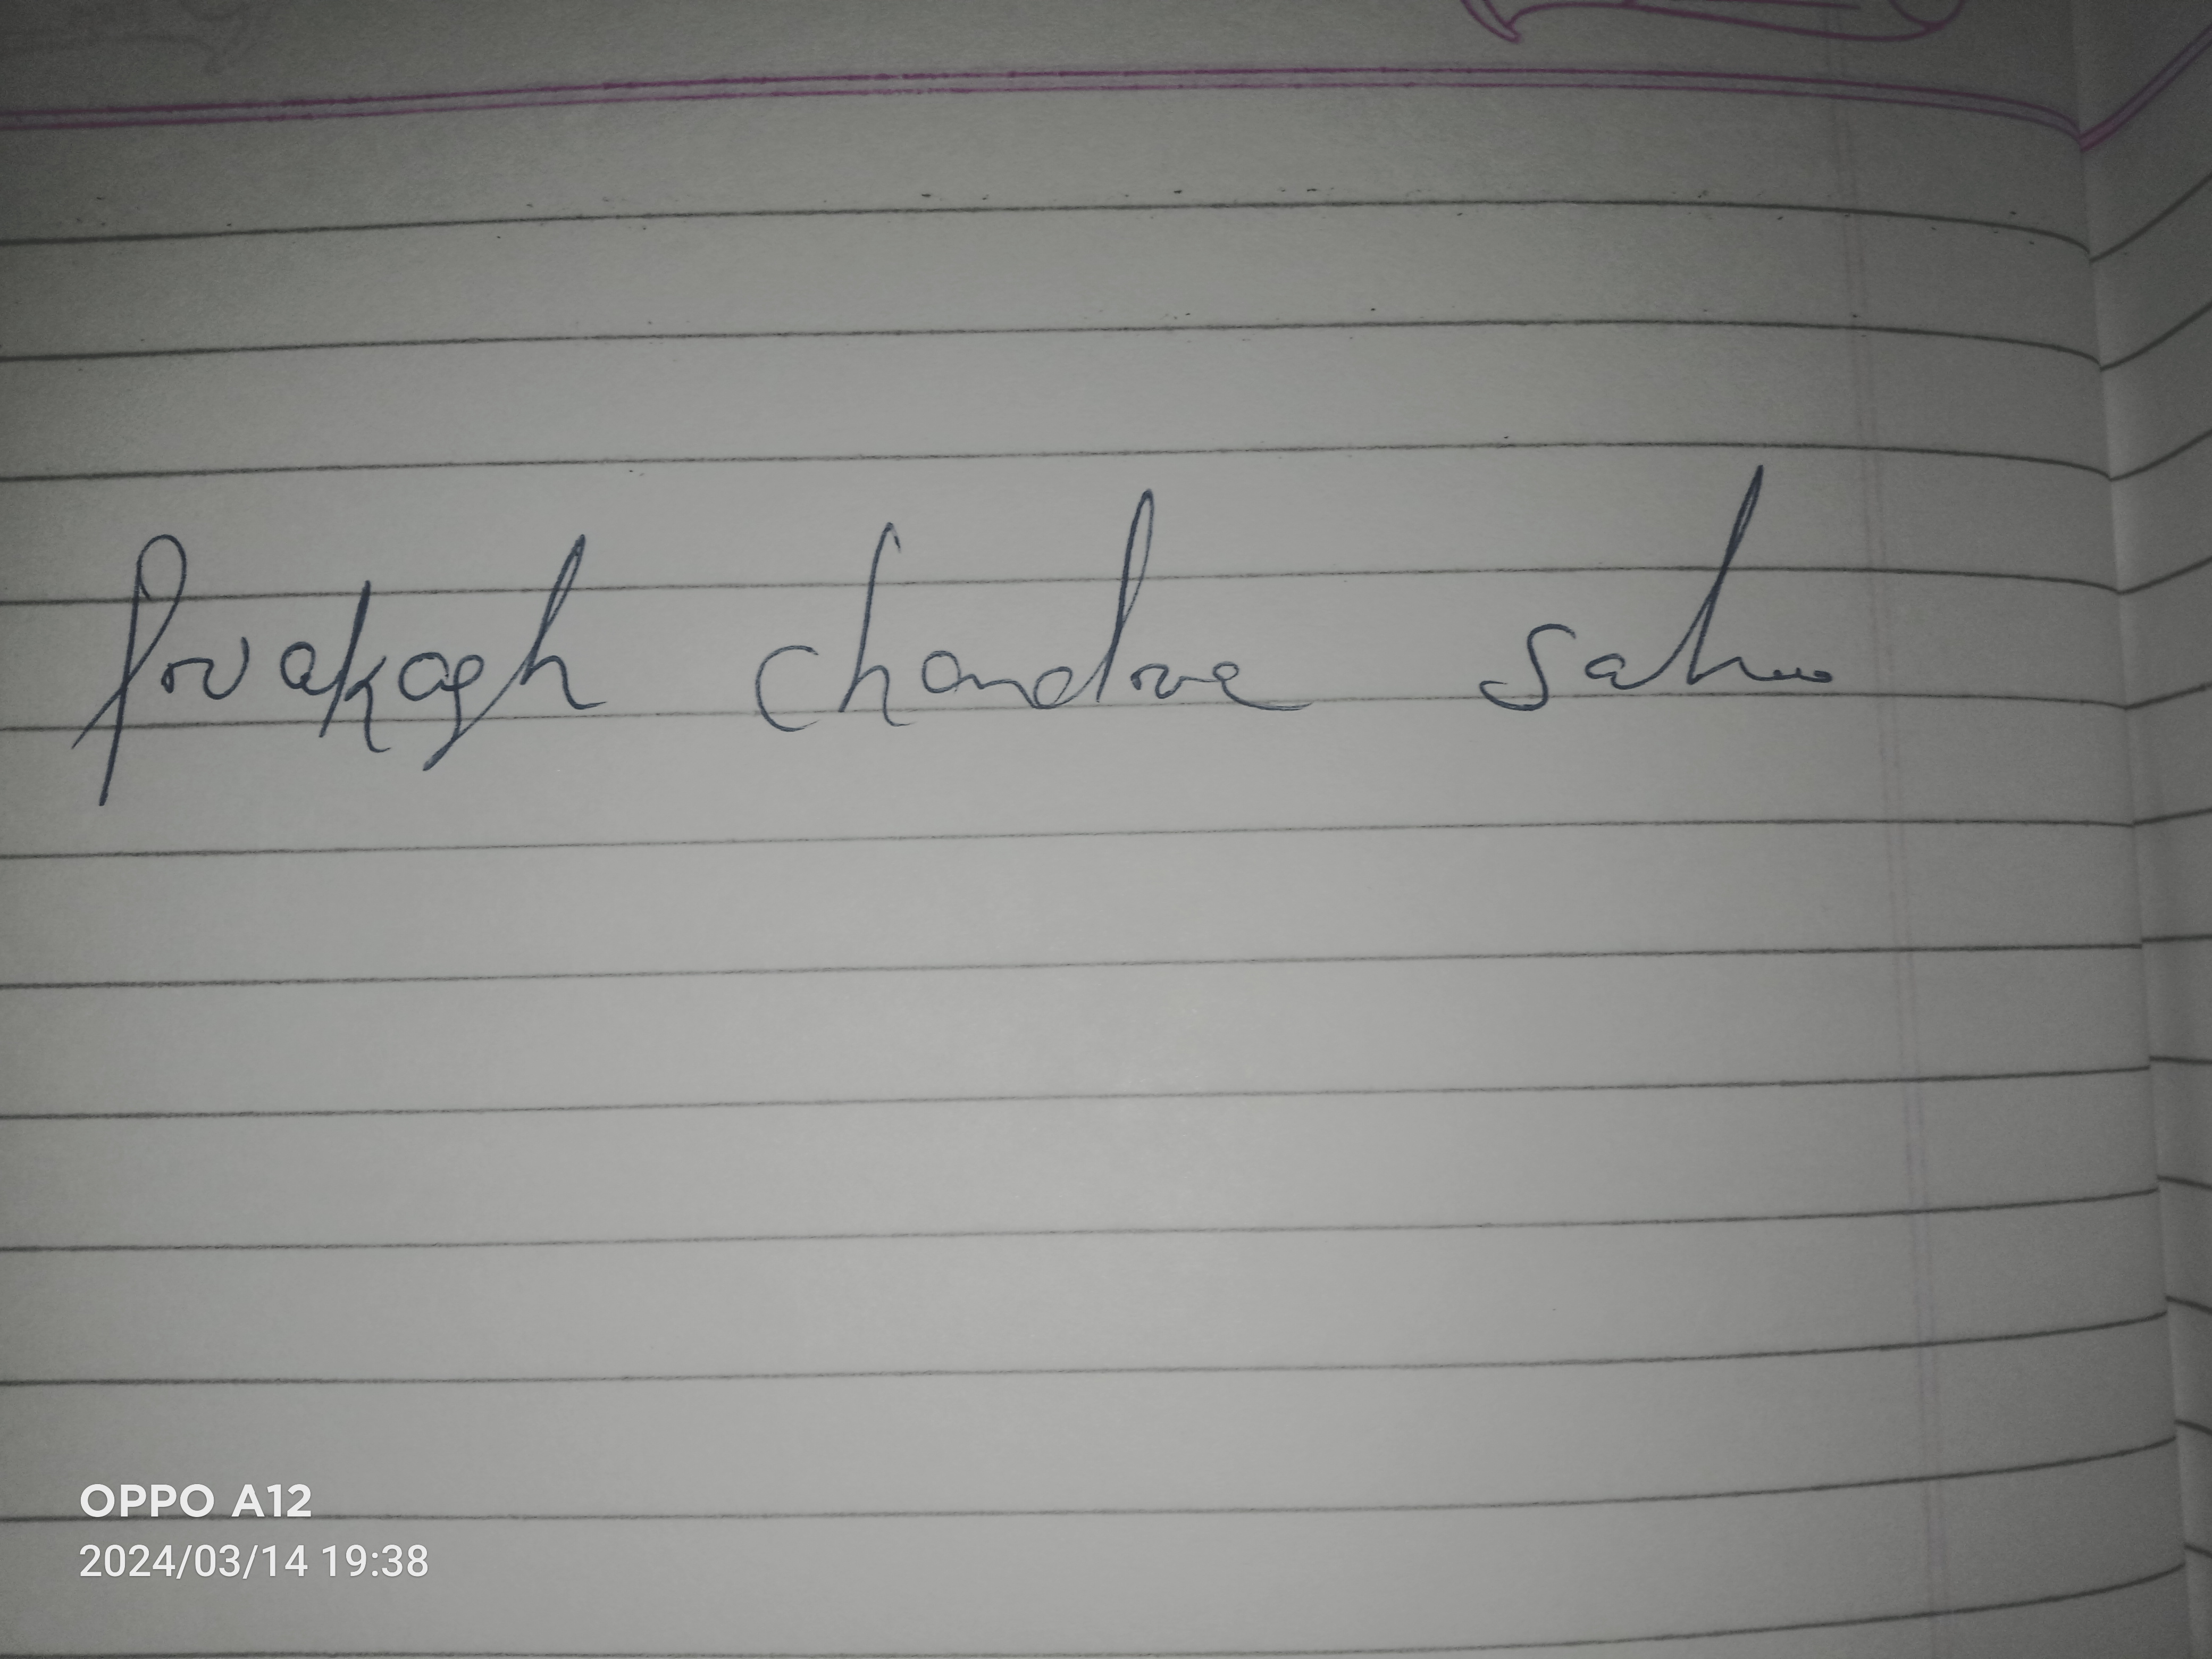 Prakash Chandra Sahoo
OPPO A12
2024/03/14 19:38